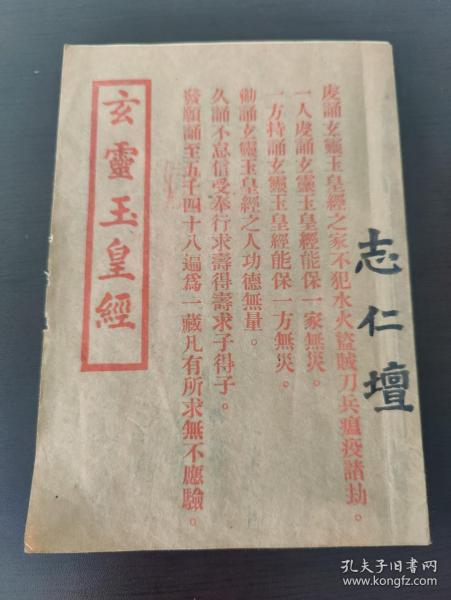 志仁壇
虔誦玄靈玉皇經之家不犯水火盜賊刀兵瘟疫諸劫。
一人虔誦玄靈玉皇經能保一家無災。
一方持誦玄靈玉皇經能保一方無災。
勸誦玄靈玉皇經之人功德無量。
久誦不怠信受奉行求壽得壽求子得子。
發願誦至五千四十八遍為一藏凡有所求無不應驗。
玄靈玉皇經
孔夫子旧书网
kongfz.com